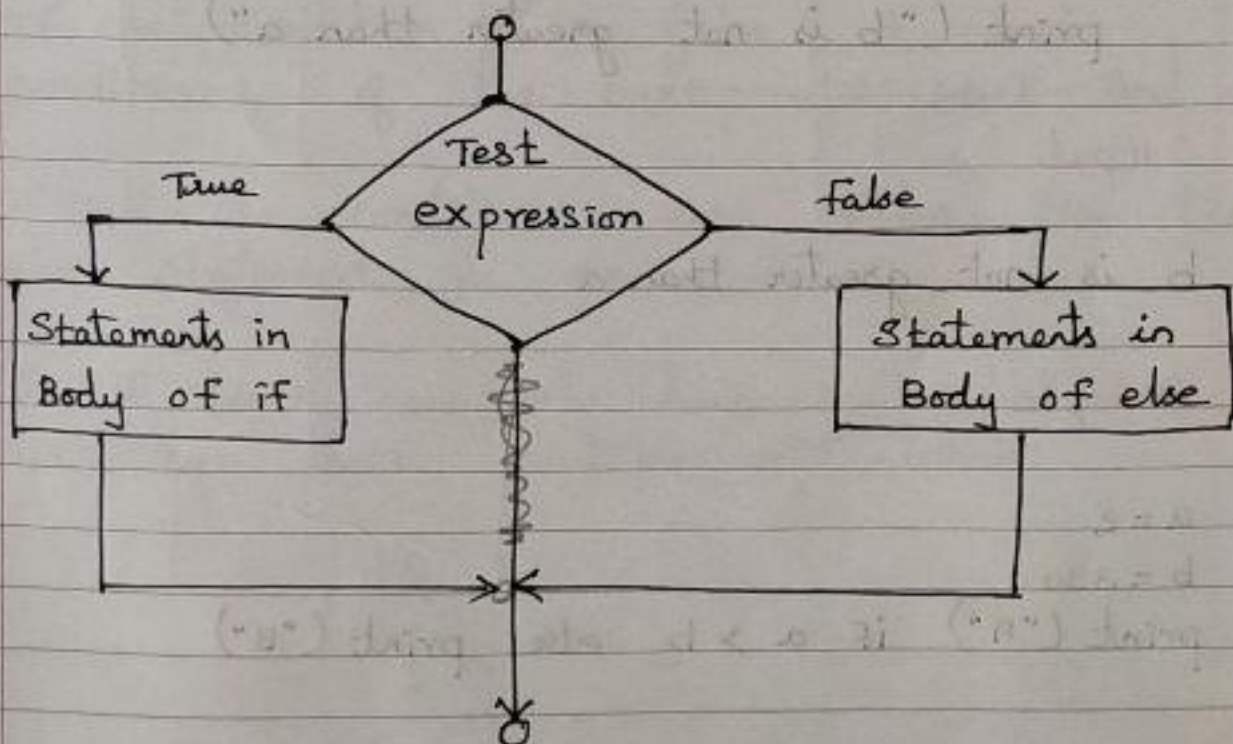 Test
expression
True
false
Statements in
Body of if
Statements in
Body of else